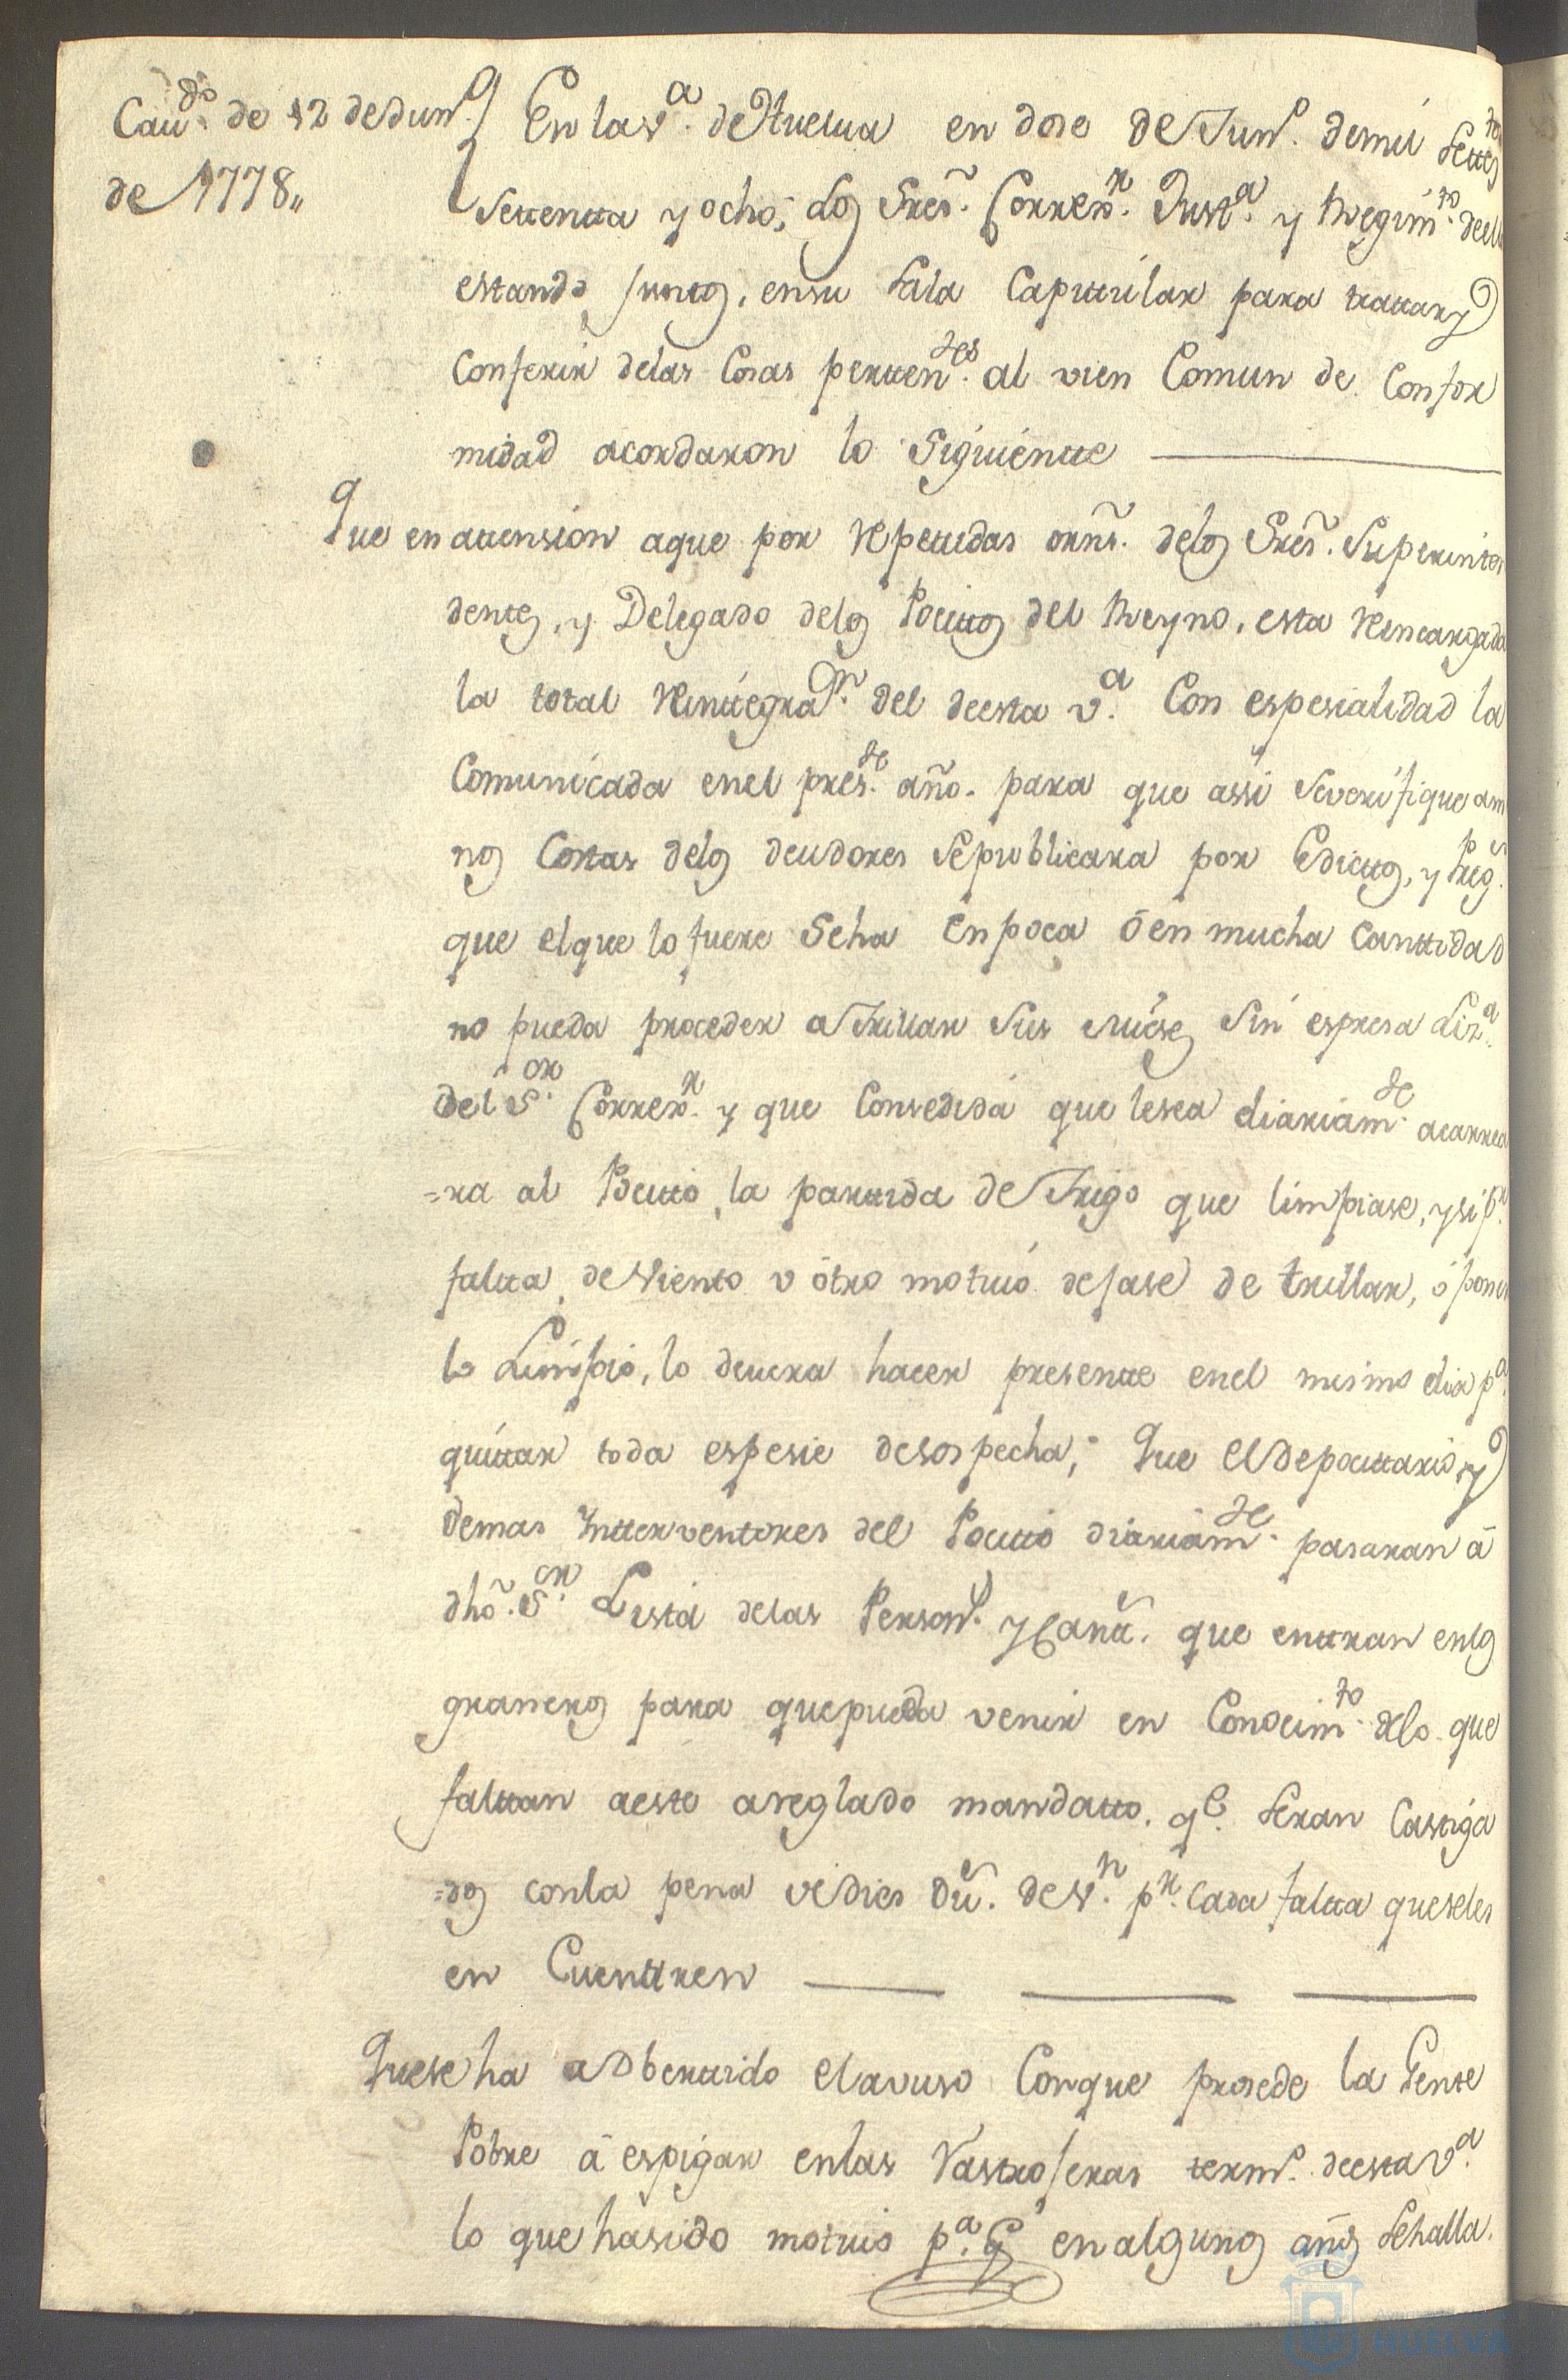 Cavdo. de 12 de Juno.
de 1778„
En la va. de Huelva en dose de Juno. de mil settesdos
settentta y ocho; Los Sres. Correxr. Justa. y Regimto. de ella
estando juntos, en su sala Capittular para trattar y
Conferir de las Cosas perttendtes al vien Comun de Confor
midad acordaron lo Siguientte
Que en attension a que por repettidas orns. de los Sres. Superinten
dentes, y Delegado de los Pocittos del Reyno, esta reencargada
la total reinttegraon. del de esta va. Con espesialidad la
Comunicada en el preste. año. para que assi se verifique a me
nos Costas de los deudores se publicara por Edicttos, y Preg.s
que el que lo fuere seha en poca ó en mucha canttidad
no pueda proceder a Trillar sus Mieses sin espresa Liza.
del Sor. Correxr. y que Consedida que le sea diariamte. acarrea
=ra al Pocitto, la parttida de Trigo que limpiase, y si pr.
faltta de Viento v ótro motivo dejase de trillar, ó poner
lo Limpio, lo devera hacer presentte en el mismo dia pa.
quittar toda espesie de sospecha; Que el depocittario y
demas Intterventores del Pocitto diariamte. pasaran á
dho. Sor. Lista de las Persons. y Cantt.s que enttran en los
graneros para que pueda venir en Conocimto. de lo que
falttan a este areglado mandatto. qe. seran Castiga
=dos con la pena de dies Du.s de Vn. pr. cada faltta que se les
en Cuenttren
Que se ha adberttido el avuso Con que prosede la Gente
Pobre á espigar en las Rastrojeras termo. de esta va.
lo que ha sido motivo pa. q en algunos años se halla.
HUELVA